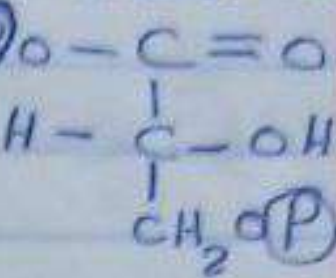 O - C = O
H - C - OH
CH₂OP